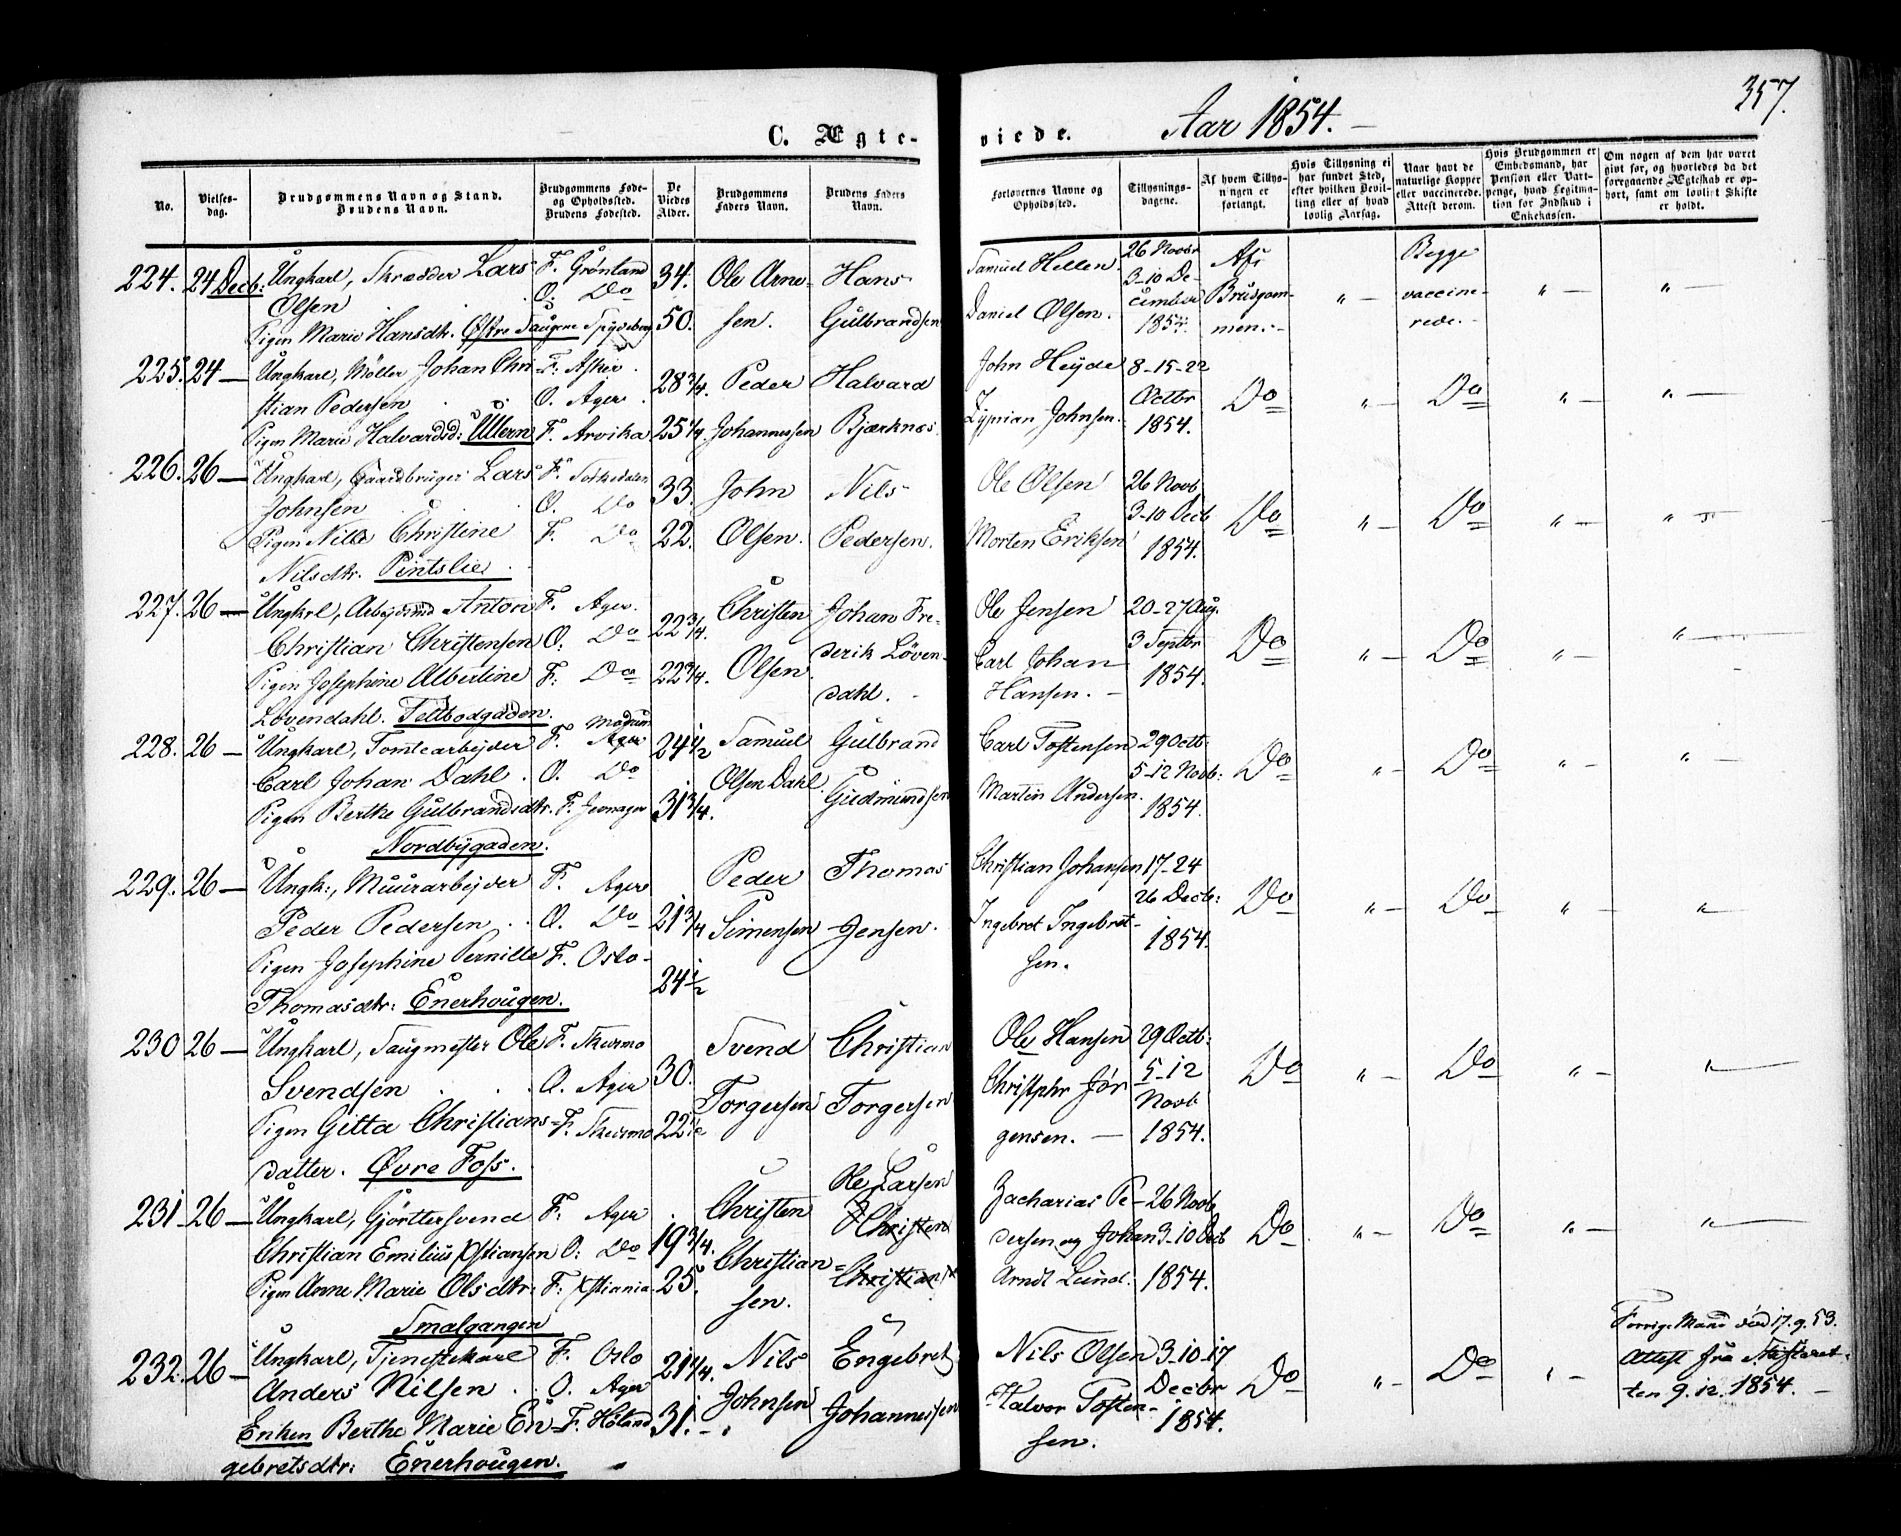 357.
C. Ægte-
viede. Aar 1854.
No.
Vielses-
dag.
Brudgommens Navn og Stand.
Brudens Navn.
Brudgommens Føde-
og Opholdssted.
Brudens Fødested.
De
Viedes
Alder.
Brudgommens
Faders Navn.
Brudens Faders
Navn.
Forlovernes Navne og
Opholdssted.
Tillysnings-
dagene.
Af hvem Tillys-
ningen er
forlangt.
Hvis Tillysning ei
har fundet Sted,
efter hvilken Bevil-
ling eller af hvad
lovlig Aarsag.
Naar havt de
naturlige Kopper
eller vaccinerede.
Attest derom.
Hvis Brudgommen er
Embedsmand, har
Pension eller Vart-
penge, hvad Legitima-
tion for Indskud i
Enkekassen.
Om nogen af dem har været
gift før, og hvorledes da det
foregaaende Ægteskab er op-
hørt, samt om lovligt Skifte
er holdt.
224. 24 Decb: Ungkarl, Skrædder Lars
Olsen
Pigen Marie Hansdtr. Østre Saugene
F. Grønland
O. Do
Spydeberg
34.
50.
Ole Arne-
sen.
Hans
Gulbrandsen
Samuel Hellen.
Daniel Olsen.
26 Novbr
3-10 De-
cember
1854.
Af
Brudgom-
men.-
" -
Begge
vaccine-
rede.-
" -
" -
225. 24 - Ungkarl, Møller Johan Chri-
stian Pedersen
Pigen Marie Halvardsd: Ullern
F. Asker.
O. Ager.
F. Arvika
28 3/4.
25 1/4.
Peder
Johannessen
Halvard
Bjærknæs
John Heyde
Zyprian Johnsen.
8-15-22
Octbr
1854.
Do
" -
Do
" -
" -
226. 26 - Ungkarl, Gaardbruger Lars
Johnsen
Pigen Nille Christine
Nilsdtr. Pintslie.
F. Sørkedalen
O. Do
F. Do
33.
22.
John
Olsen.
Nils
Pedersen.
Ole Olsen
Morten Eriksen
26 Novb
3-10 Decb
1854.
Do
" -
Do
" -
" -
227. 26 - Ungkrl, Arbejdsmd Anton
Christian Christensen
Pigen Josephine Albertine
Løvendahl. Teltbodgaden.
F. Ager.
O. Do
F: Do
22 3/4.
22 3/4.
Christen
Olsen.
Johan Fre-
derik Løven-
dahl. -
Ole Jensen
Carl Johan
Hansen. -
20-27 Aug.
3 Septbr
1854.
Do
" -
Do
" -
" -
228. 26 - Ungkarl, Tomtearbejder
Carl Johan Dahl.
Pigen Berthe Gulbrandsdtr.
Nordbygaden.
F. Modum
Ager
O. Do
F. Jevnager
24 1/2
31 3/4.
Samuel
Olsen Dahl.
Gulbrand
Gudmundsen
Carl Tostensen
Martin Andersen.
29 Octb:
5-12 Novb:
1854.
Do
" -
Do
" -
" -
229. 26 - Ungk:, Muurarbejder
Peder Pedersen
Pigen Josephine Pernille
Thomasdtr: Enerhougen.
F. Ager
O. Do
F. Oslo-
21 3/4
24 1/2
Peder
Simensen
Thomas
Jensen.
Christian Johansen
Ingebret Ingebret-
sen.
17-24
26 Decb:
1854.
Do
" -
Do
" -
" -
230 26 - Ungkarl, Saugmester Ole
Svendsen
Pigen Gitta Christians-
datter. Øvre Foss.
F. Skurmo
O. Ager
F. Skurmo
30.
22 1/2
Svend
Torgersen
Christian
Torgersen
Ole Hansen
Christphr Jør-
gensen. -
29 Octb:
5-12
Novb
1854.
Do
" -
Do
" -
" -
231 26 - Ungkarl, Gjørtlersvend
Christian Emilius Xstiansen
Pigen Anne Marie Olsdtr:
Smalgangen
F: Ager
O: Do
F: Xstiania.
19 3/4.
25.
Christen
Christian-
sen.
Ole Larsen
Christen
Christians
Zacharias Pe-
dersen og Johan
Arndt Lund.
26 Novb
3-10 Decb
1854.
Do
" -
Do
" -
" -
232. 26 - Ungkarl, Tjenestekarl
Anders Nilsen
Enken Berthe Marie En-
gebretsdtr: Enerhougen.
F. Oslo
O. Ager
F. Høland
21 1/4.
31.-
Nils
Johnsen
Engebret
Johannessen
Nils Olsen
Halvor Tosten-
sen.
3-10-17
Decbr
1854.
Do
" -
Do
" -
Forrige Mand død 17.9.53.
Attest fra Skifteret-
ten 9.12.1854. -